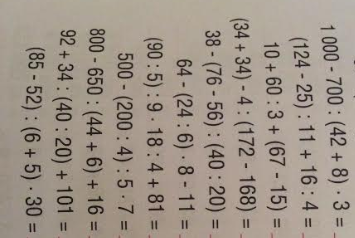 1 000 - 700 : (42 + 8) · 3 =
(124 - 25) : 11 + 16 : 4 =
10 + 60 : 3 + (67 - 15) =
(34 + 34) - 4 : (172 - 168) =
38 - (76 - 56) : (40 : 20) =
64 - (24 : 6) · 8 - 11 =
(90 : 5) : 9 · 18 : 4 + 81 =
500 - (200 · 4) : 5 · 7 =
800 - 650 : (44 + 6) + 16 =
92 + 34 : (40 : 20) + 101 =
(85 - 52) : (6 + 5) · 30 =